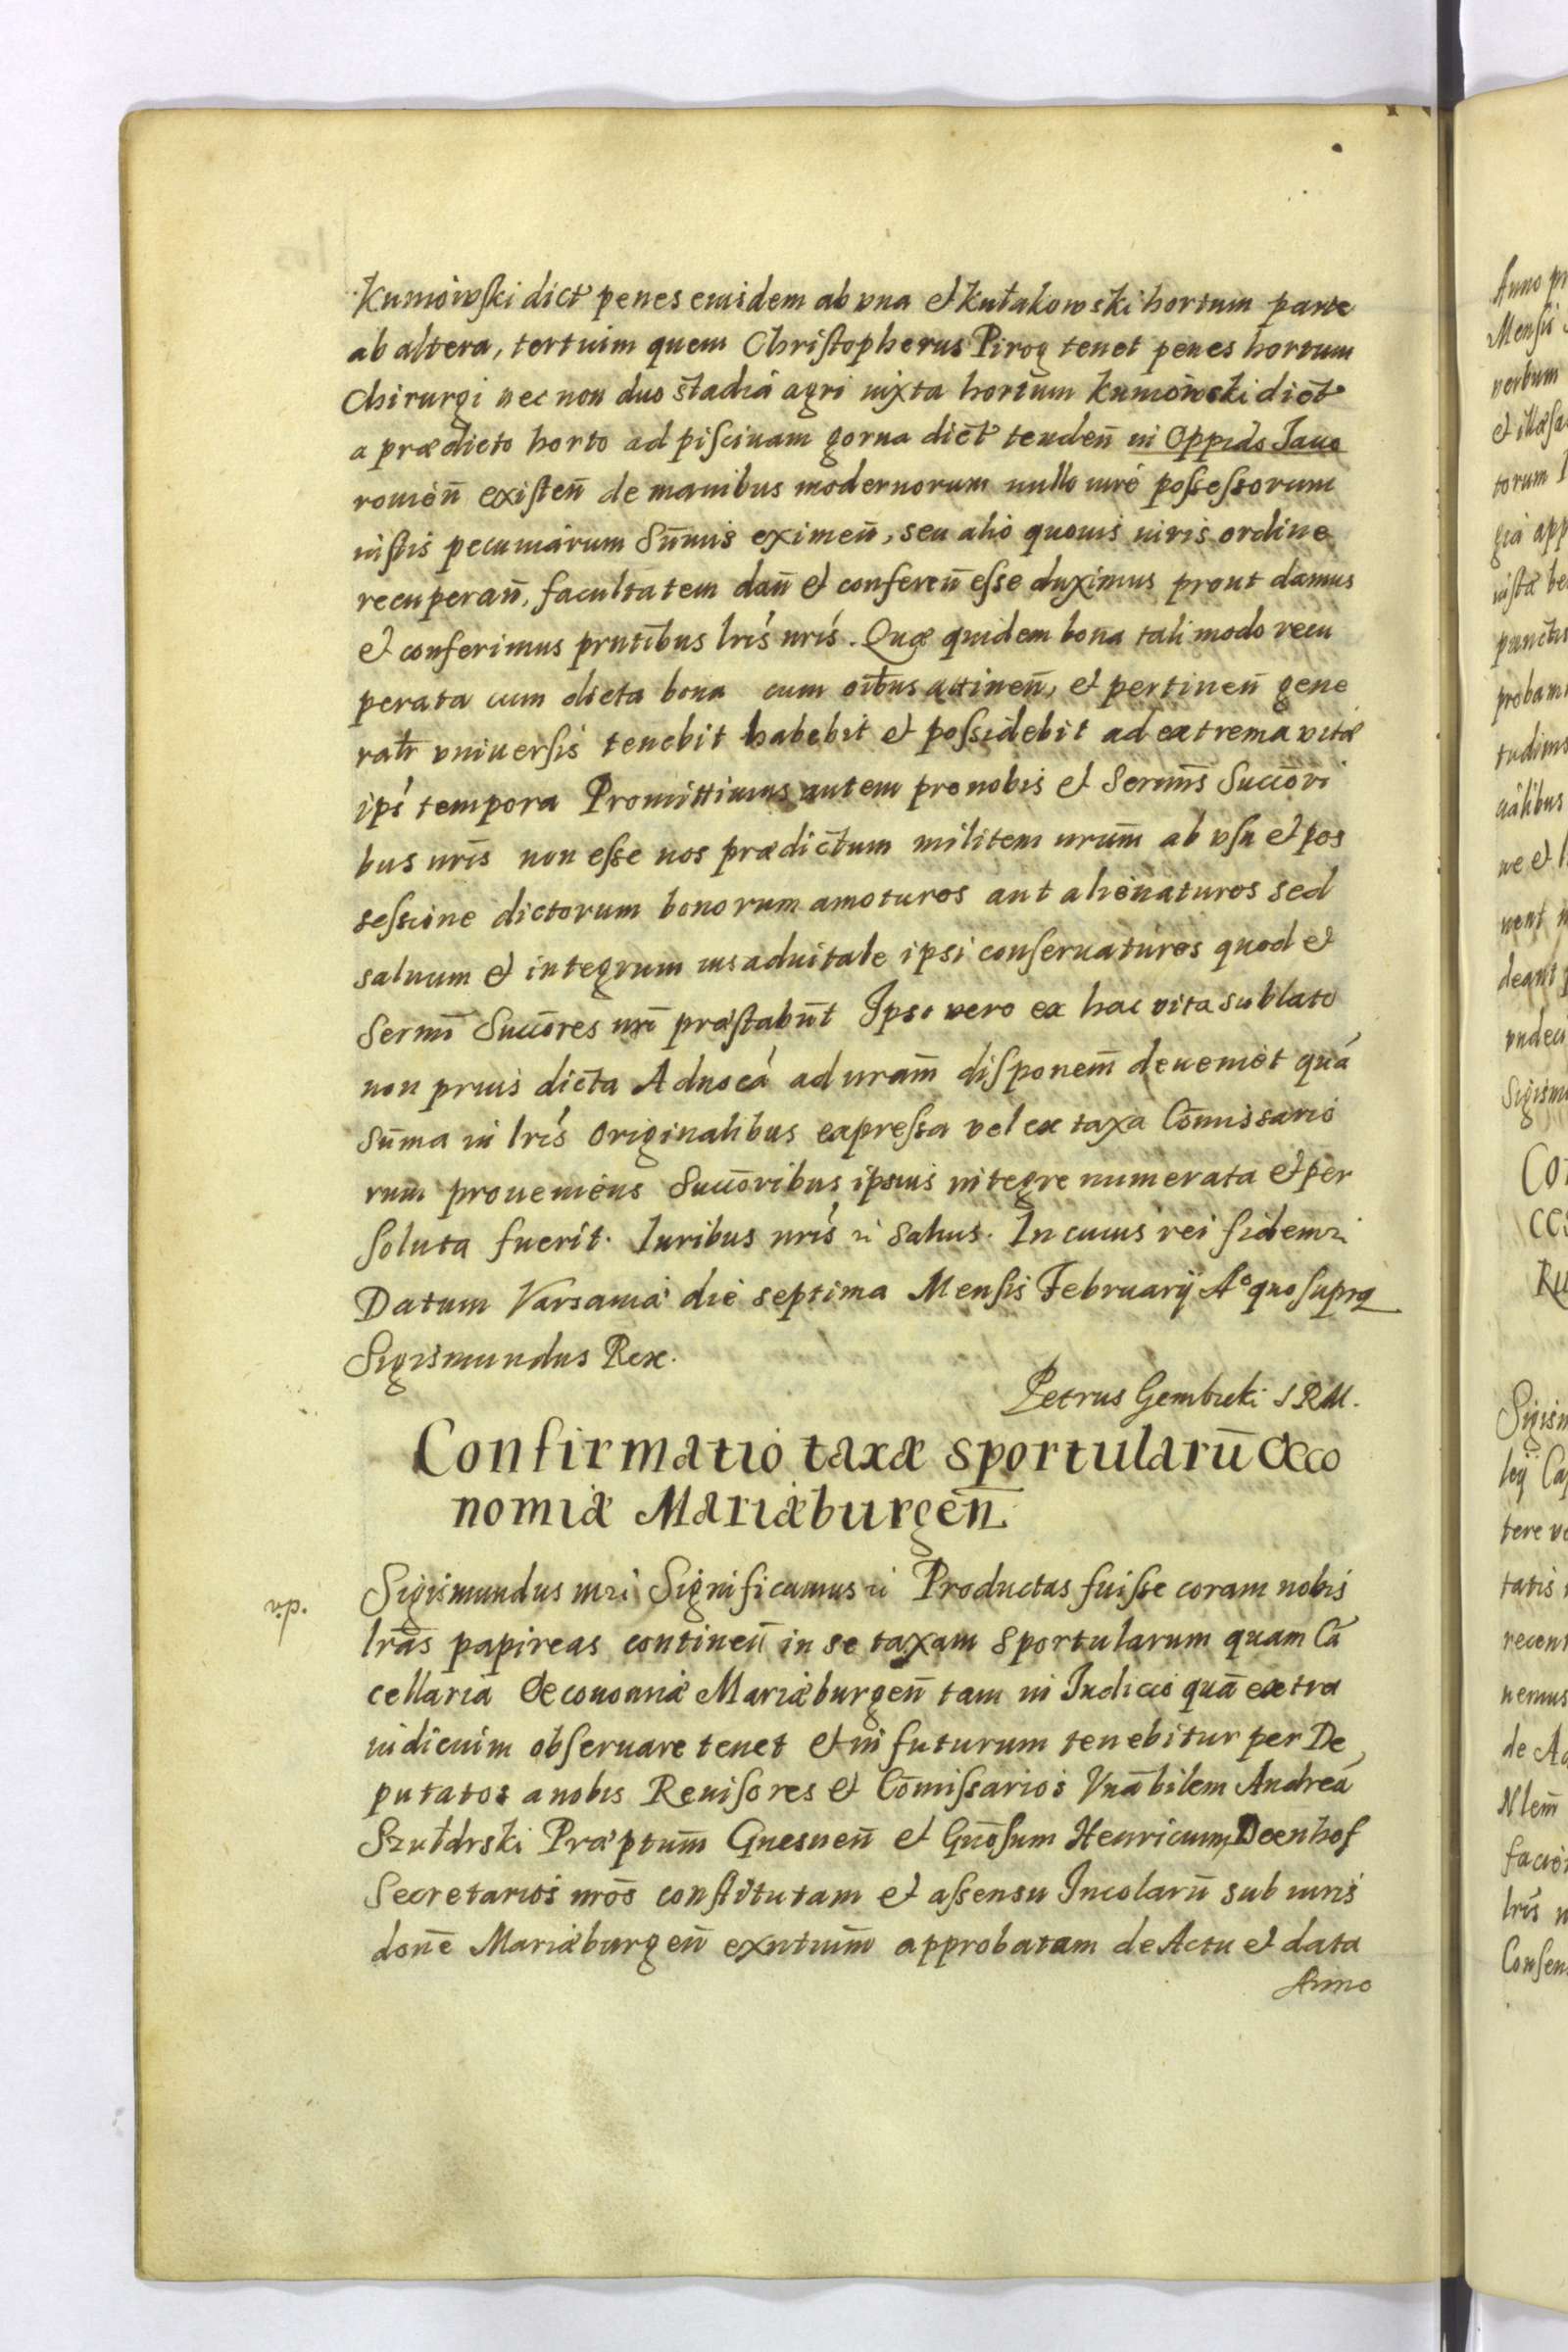 Kumowski dict penes eiusdem ab vna et Kułakowski hortum parte
ab altera, tertium quem Christopherus Pirog tenet penes hortum
Chirurgi nec non duo stadia agri iuxta hortum Kumowski dict
a prædicto horto ad piscinam gorna dict tendeñ in Oppido Jauo
rouień existeñ de manibus modernorum nullo iure possessorum
iustis pecuniarum sum̄is eximeñ, seu alio quouis iuris ordine
recuperañ, facultatem dañ et confereñ esse duximus prout damus
et conferimus pn̄tibus lrīs nrīs. Quæ quidem bona tali modo recu
perata cum dicta bona cum oībus attineñ, et pertineñ gene
ralr vniuersis tenebit habebit et possidebit ad extrema vitæ
ipī tempora Promittimus autem pro nobis et Sermīs Succōri
bus nrīs non esse nos prædictum militem nrūm ab vsu et pos
sessione dictorum bonorum amoturos aut alienaturos sed
saluum et integrum ius aduitale ipsi conseruaturos quod et
Sermī Succōres nrī præstabūt Ipso vero ex hac vita sublato
non prius dicta Aduocā ad nrām dispoñem deueniet quā
sum̄a in lrīs Originalibus expressa vel ex taxa Com̄issario
rum proueniens Succōribus ipsius integre numerata et per
soluta fuerit. Iuribus nrīs  saluis. In cuius rei fidem
Datum Varsauiæ die septima Mensis Februarij A° quo supra
Sigismundus Rex.
Petrus Gembicki S R M.
Confirmatio taxæ sportularū Oeco
nomiæ Mariæburgeñ
Sigismundus  Significamus  Productas fuisse coram nobis
lrās papireas contineñ in se taxam Sportularum quam Cā
cellaria Oeconomiæ Mariæburgeñ tam in Iudicio quā extra
iudicium obseruare tenet et in futurum tenebitur per De
putatos a nobis Reuisores et Com̄issarios Vnābilem Andreā
Szułdrski Præptum̄ Gnesneñ et Gnōsum Henricum Deenhof
Secretarios nrōs constitutam et assensu Incolarū sub iuris
doñe Mariæburgeñ exntium̄ approbatam de Actu et data
Anno